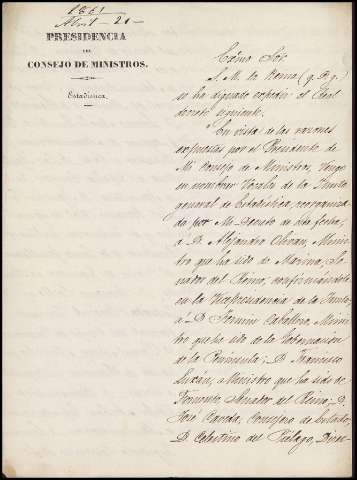 1861
Abril - 21 -
PRESIDENCIA
DEL
CONSEJO DE MINISTROS.
Estadística.
Excmo Sor
S. M. la Reina (q. D. g.)
se ha dignado expedir el Real
decreto siguiente.
"En vista de las razones
expuestas por el Presidente de
Mi Consejo de Ministros, Vengo
en nombrar Vocales de la Junta
general de Estadística, reorganiza
da por Mi Decreto de esta fecha,
á D. Alejandro Olivan, Minis
tro que ha sido de Marina, Se
nador del Reino, confirmándole
en la Vicepresidencia de la Junta;
á D. Fermin Caballero, Minis
tro que ha sido de la Gobernacion
de la Península; D. Francisco
Luxán, Ministro que ha sido de
Fomento, Senador del Reino; D.
José Caveda, Consejero de Estado;
D. Celestino del Piélago, Direc-